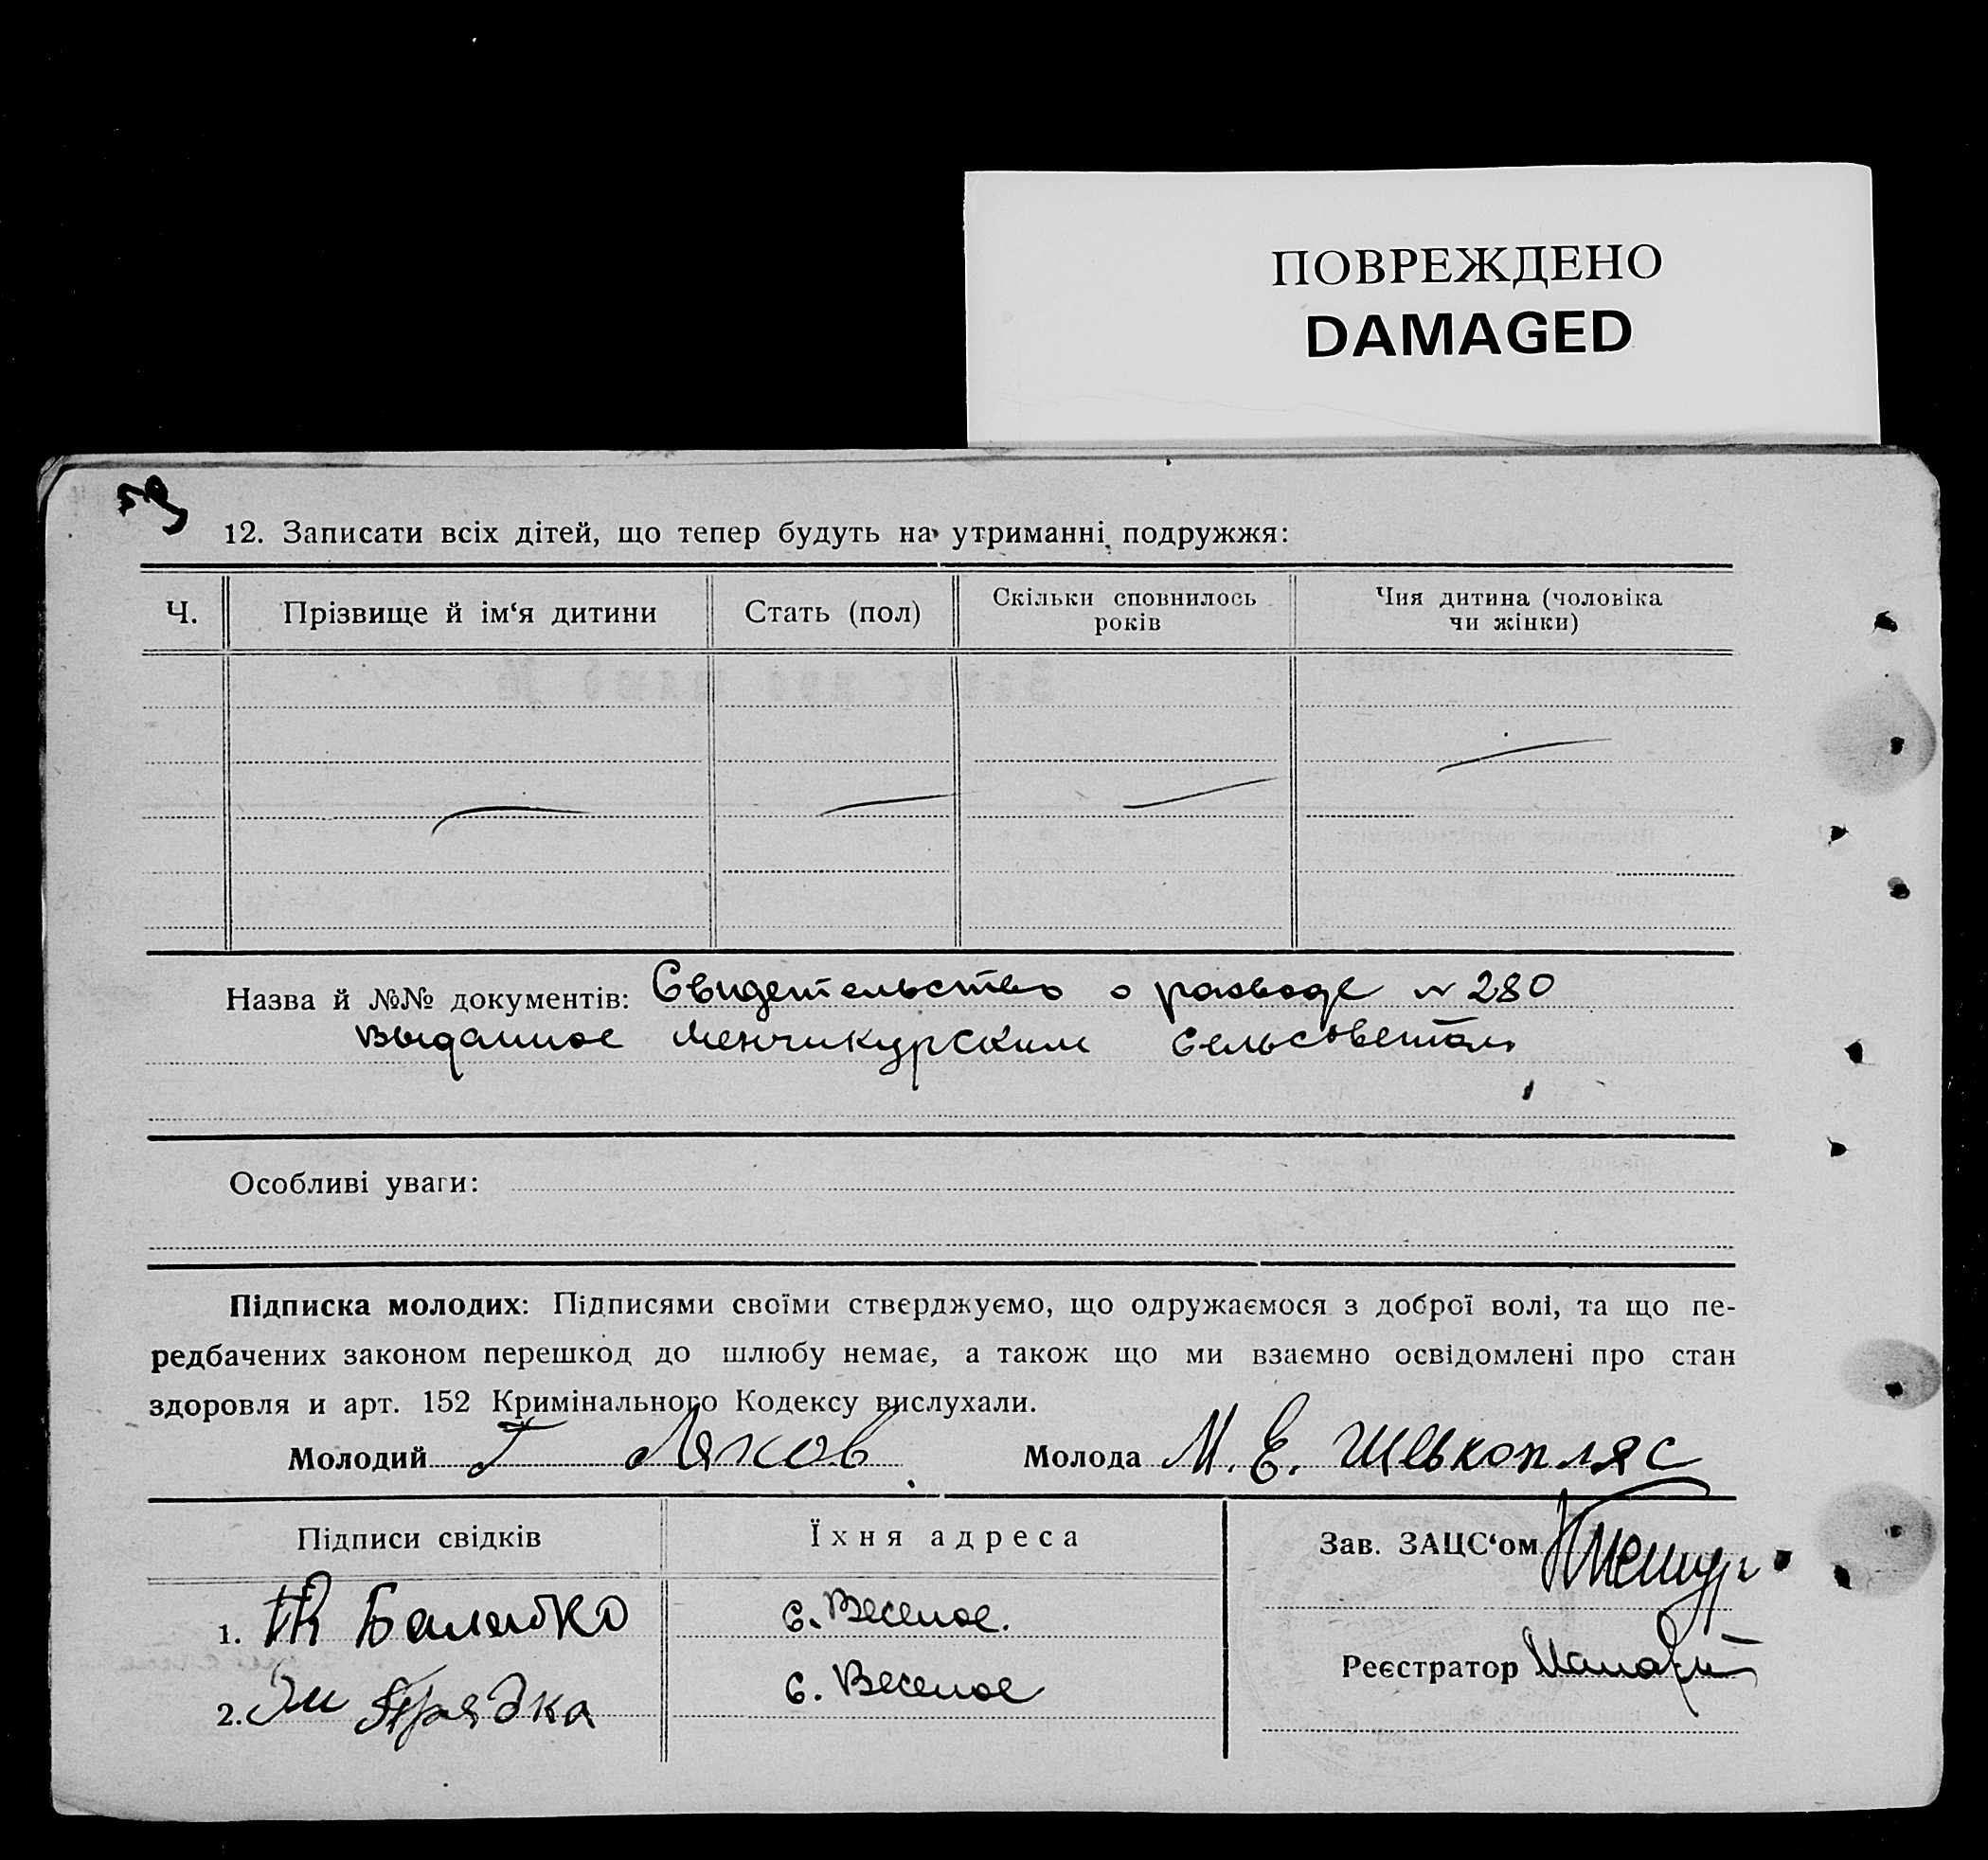 ПОВРЕЖДЕНО
DAMAGED
59
12. Записати всіх дітей, що тепер будуть на утриманні подружжя:
Ч. Прізвище й ім‘я дитини Стать (пол) Скільки сповнилось років Чия дитина (чоловіка чи жінки)
Назва й №№ документів: Свидетельство о разводе № 280
Выданное Менчикурским сельсоветом
Особливі уваги:
Підписка молодих: Підписями своїми стверджуємо, що одружаємося з доброї волі, та що пе-
редбачених законом перешкод до шлюбу немає, а також що ми взаємно освідомлені про стан
здоровля и арт. 152 Кримінального Кодексу вислухали.
Молодий Г Ляхов Молода М. Е. Шевкопляс
Підписи свідків Їхня адреса Зав. ЗАЦС‘ом
1. Балабко с. Веселое.
Реєстратор
2. Прядка с. Веселое